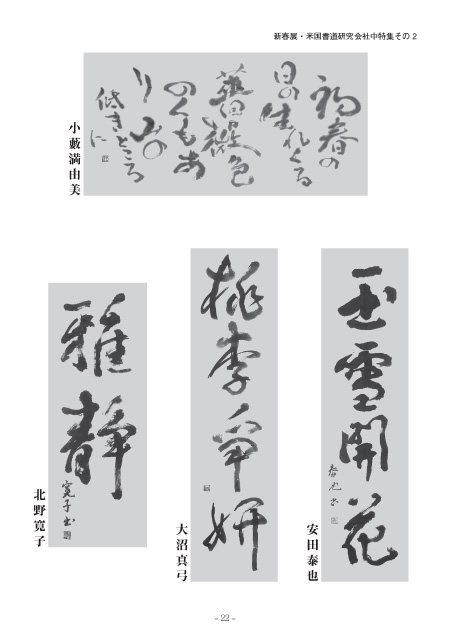 新春展・米国書道研究会社中特集その2
初春の
日の生れくる
薔薇色
のくもあ
り山の
低きところ
に
小藪満由美
玉雪開花
安田泰也
桃李争妍
大沼真弓
雅静
寛子書
北野寛子
- 22 -